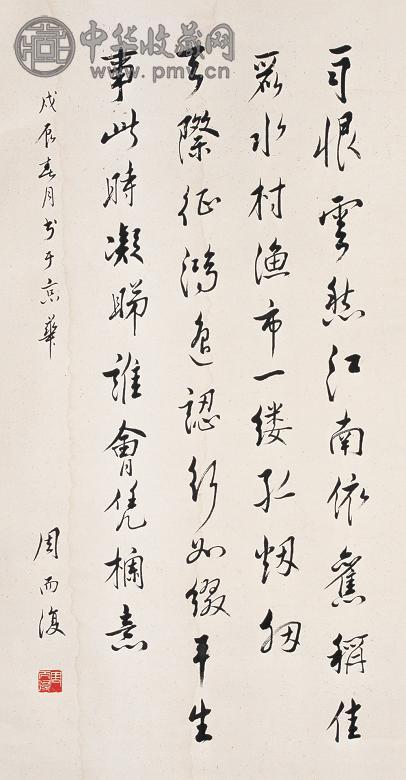 中华收藏网
雨恨雲愁江南依舊稱佳
麗水村渔市一缕孤烟细
天際征鴻遥認行如缀平生
事此時凝睇誰會凭欄意
戊辰春月书于京華
周而復